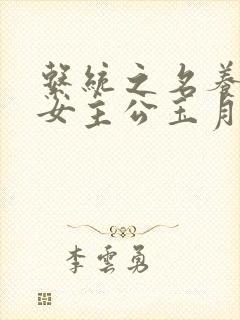 繫統之名養
女主公玉月
李雲勇